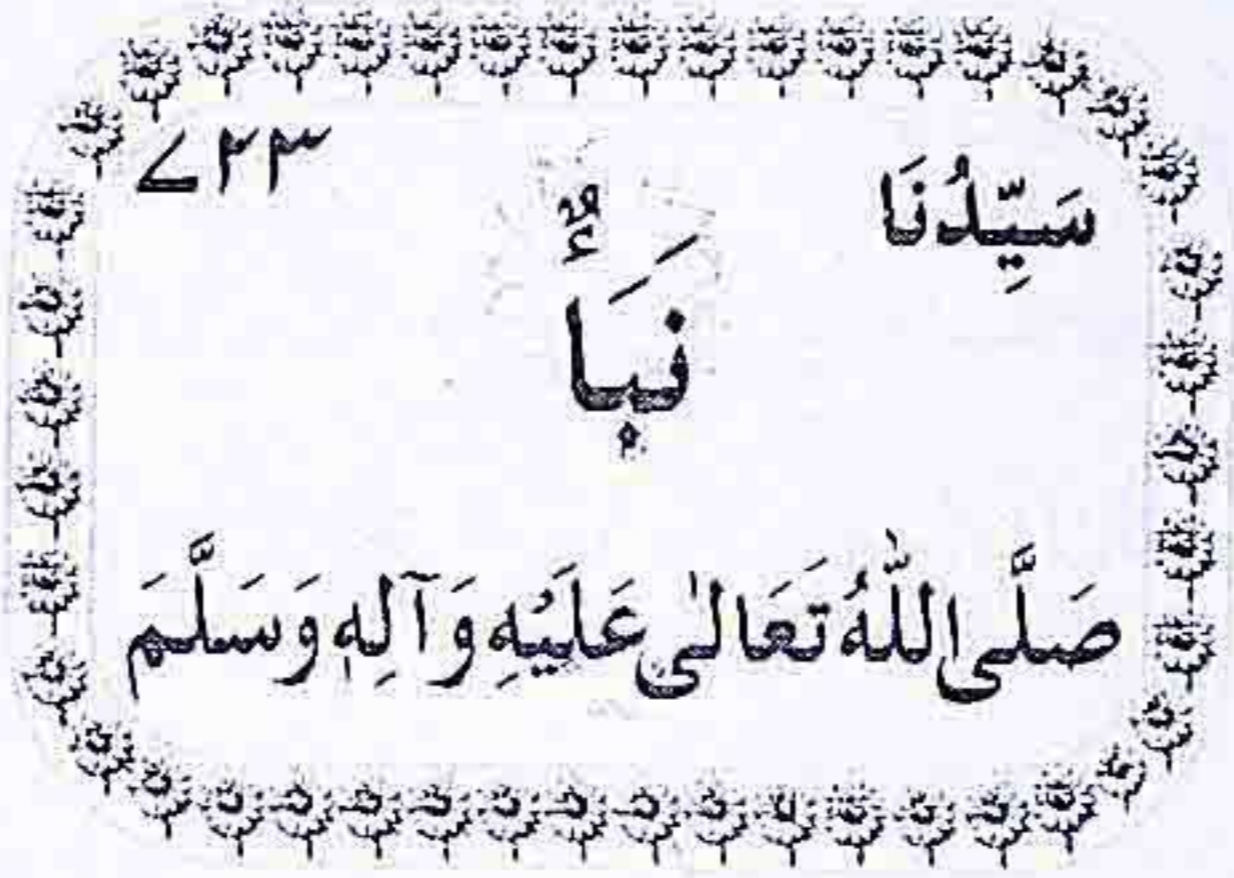 سَيِّدُنَا
۷۲۳
نَبَأٌ
صَلَّى اللّٰهُ تَعَالٰى عَلَيْهِ وَآلِهٖ وَسَلَّمَ